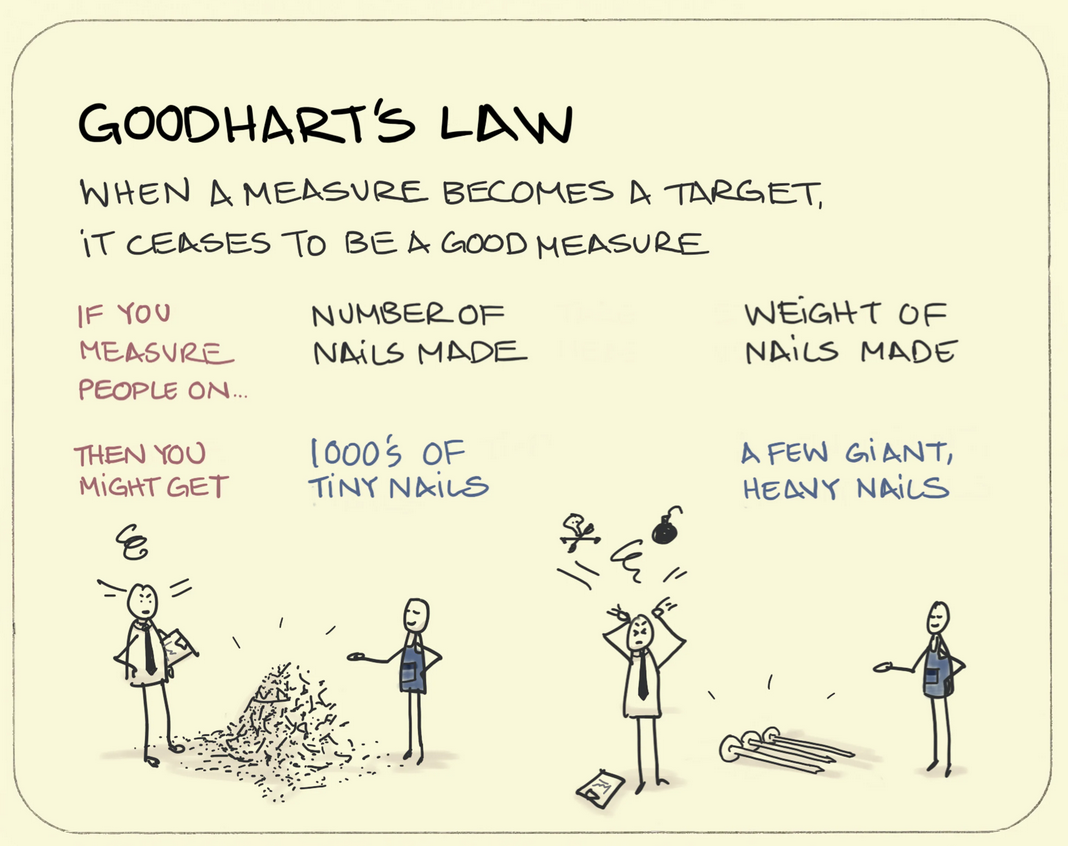 GOODHART'S LAW
WHEN A MEASURE BECOMES A TARGET,
IT CEASES TO BE A GOOD MEASURE
IF YOU
MEASURE
PEOPLE ON...
NUMBER OF
NAILS MADE
WEIGHT OF
NAILS MADE
THEN YOU
MIGHT GET
1000'S OF
TINY NAILS
A FEW GIANT,
HEAVY NAILS